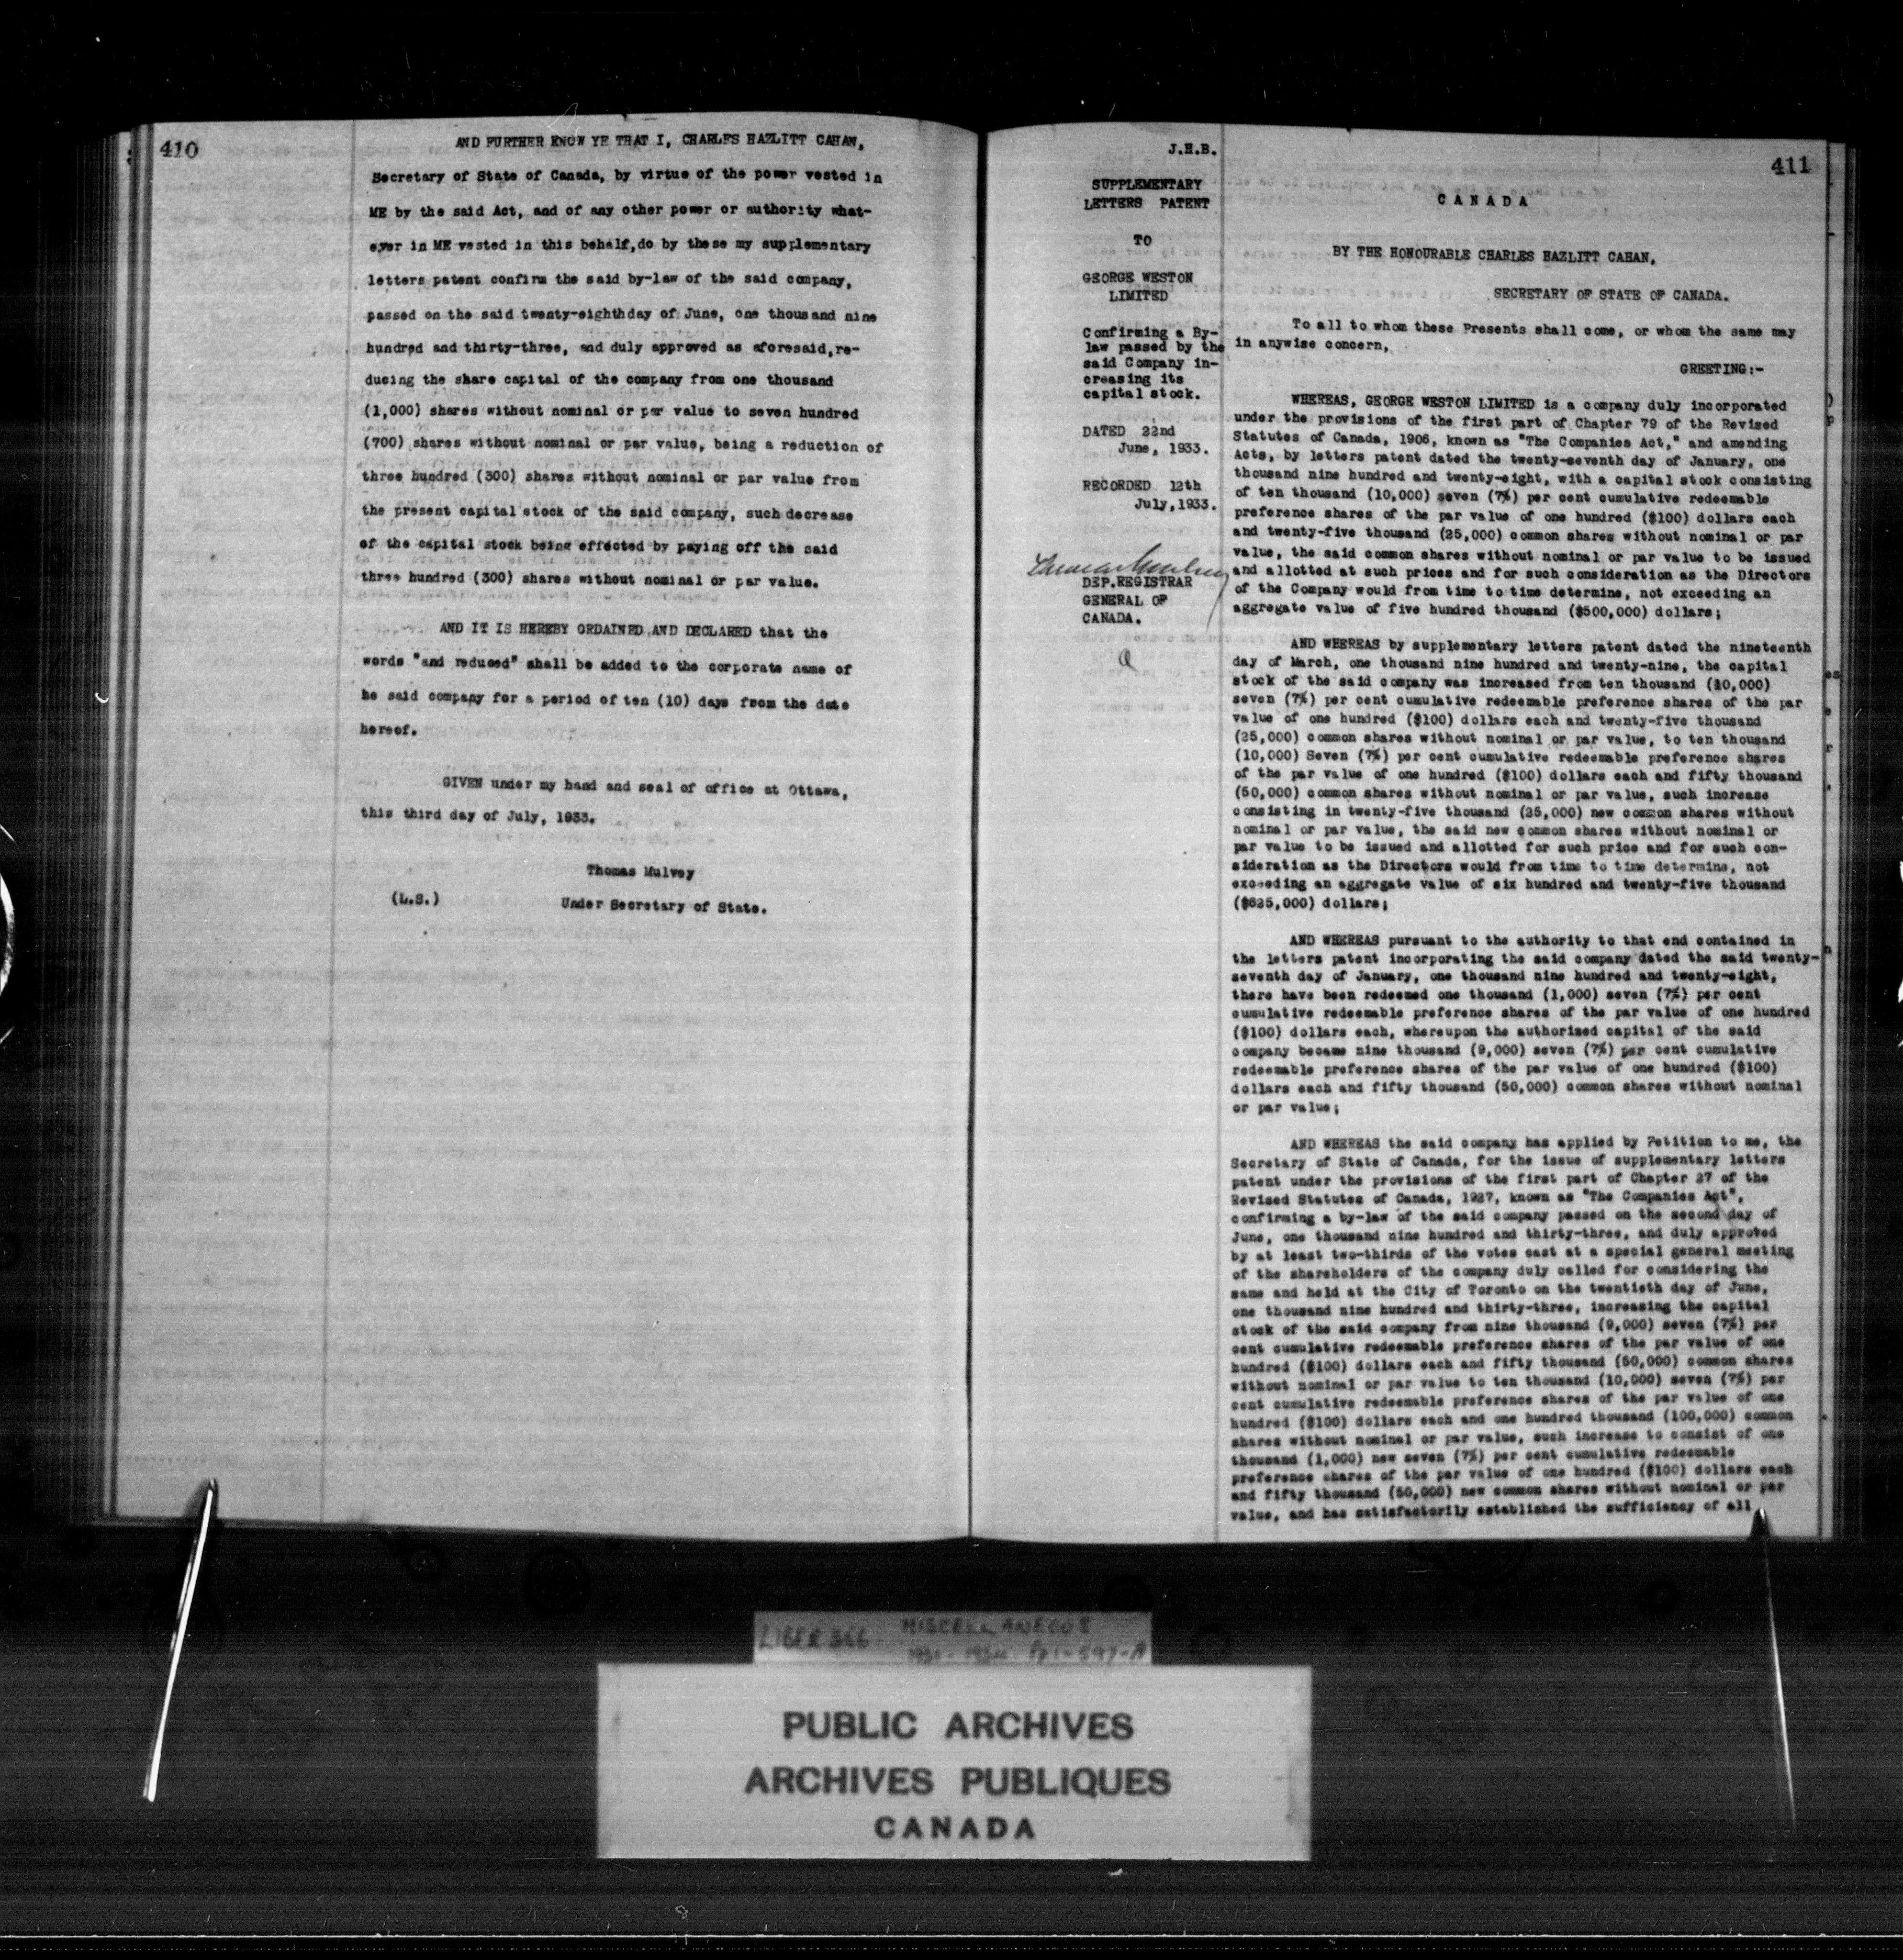 410
AND FURTHER KNOW YE THAT I, CHARLES HAZLITT CAHAN,
Secretary of State of Canada, by virtue of the power vested in
ME by the said Act, and of any other power or authority what-
ever in ME vested in this behalf,do by these my supplementary
letters patent confirm the said by-law of the said company,
passed on the said twenty-eighthday of June, one thousand nine
hundred and thirty-three, and duly approved as aforesaid,re-
ducing the share capital of the company from one thousand
(1,000) shares without nominal or par value to seven hundred
(700) shares without nominal or par value, being a reduction of
three hundred (300) shares without nominal or par value from
the present capital stock of the said company, such decrease
of the capital stock being effected by paying off the said
three hundred (300) shares without nominal or par value.
AND IT IS HEREBY ORDAINED AND DECLARED that the
words "and reduced" shall be added to the corporate name of
he said company for a period of ten (10) days from the date
hereof.
GIVEN under my hand and seal of office at Ottawa,
this third day of July, 1933.
Thomas Mulvey
(L.S.) Under Secretary of State.
J.H.B.
SUPPLEMENTARY
LETTERS PATENT
TO
GEORGE WESTON
LIMITED
Confirming a By-
law passed by the
said Company in-
creasing its
capital stock.
DATED 22nd
June, 1933.
RECORDED 12th
July,1933.
Thomas Mulvey
DEP.REGISTRAR
GENERAL OF
CANADA.
411
CANADA
BY THE HONOURABLE CHARLES HAZLITT CAHAN,
SECRETARY OF STATE OF CANADA.
To all to whom these Presents shall come, or whom the same may
in anywise concern,
GREETING:-
WHEREAS, GEORGE WESTON LIMITED is a company duly incorporated
under the provisions of the first part of Chapter 79 of the Revised
Statutes of Canada, 1906, known as "The Companies Act," and amending
Acts, by letters patent dated the twenty-seventh day of January, one
thousand nine hundred and twenty-eight, with a capital stock consisting
of ten thousand (10,000) seven (7%) per cent cumulative redeemable
preference shares of the par value of one hundred ($100) dollars each
and twenty-five thousand (25,000) common shares without nominal or par
value, the said common shares without nominal or par value to be issued
and allotted at such prices and for such consideration as the Directors
of the Company would from time to time determine, not exceeding an
aggregate value of five hundred thousand ($500,000) dollars;
AND WHEREAS by supplementary letters patent dated the nineteenth
day of March, one thousand nine hundred and twenty-nine, the capital
stock of the said company was increased from ten thousand (10,000)
seven (7%) per cent cumulative redeemable preference shares of the par
value of one hundred ($100) dollars each and twenty-five thousand
(25,000) common shares without nominal or par value, to ten thousand
(10,000) Seven (7%) per cent cumulative redeemable preference shares
of the par value of one hundred ($100) dollars each and fifty thousand
(50,000) common shares without nominal or par value, such increase
consisting in twenty-five thousand (25,000) new common shares without
nominal or par value, the said new common shares without nominal or
par value to be issued and allotted for such price and for such con-
sideration as the Directors would from time to time determine, not
exceeding an aggregate value of six hundred and twenty-five thousand
($625,000) dollars;
AND WHEREAS pursuant to the authority to that end contained in
the letters patent incorporating the said company dated the said twenty-
seventh day of January, one thousand nine hundred and twenty-eight,
there have been redeemed one thousand (1,000) seven (7%) per cent
cumulative redeemable preference shares of the par value of one hundred
($100) dollars each, whereupon the authorized capital of the said
company became nine thousand (9,000) seven (7%) per cent cumulative
redeemable preference shares of the par value of one hundred ($100)
dollars each and fifty thousand (50,000) common shares without nominal
or par value;
AND WHEREAS the said company has applied by Petition to me, the
Secretary of State of Canada, for the issue of supplementary letters
patent under the provisions of the first part of Chapter 27 of the
Revised Statutes of Canada, 1927, known as "The Companies Act",
confirming a by-law of the said company passed on the second day of
June, one thousand nine hundred and thirty-three, and duly approved
by at least two-thirds of the votes cast at a special general meeting
of the shareholders of the company duly called for considering the
same and held at the City of Toronto on the twentieth day of June,
one thousand nine hundred and thirty-three, increasing the capital
stock of the said company from nine thousand (9,000) seven (7%) per
cent cumulative redeemable preference shares of the par value of one
hundred ($100) dollars each and fifty thousand (50,000) common shares
without nominal or par value to ten thousand (10,000) seven (7%) per
cent cumulative redeemable preference shares of the par value of one
hundred ($100) dollars each and one hundred thousand (100,000) common
shares without nominal or par value, such increase to consist of one
thousand (1,000) new seven (7%) per cent cumulative redeemable
preference shares of the par value of one hundred ($100) dollars each
and fifty thousand (50,000) new common shares without nominal or par
value, and has satisfactorily established the sufficiency of all
LIBER 356 MISCELLANEOUS
Pp 1-597-A
PUBLIC ARCHIVES
ARCHIVES PUBLIQUES
CANADA